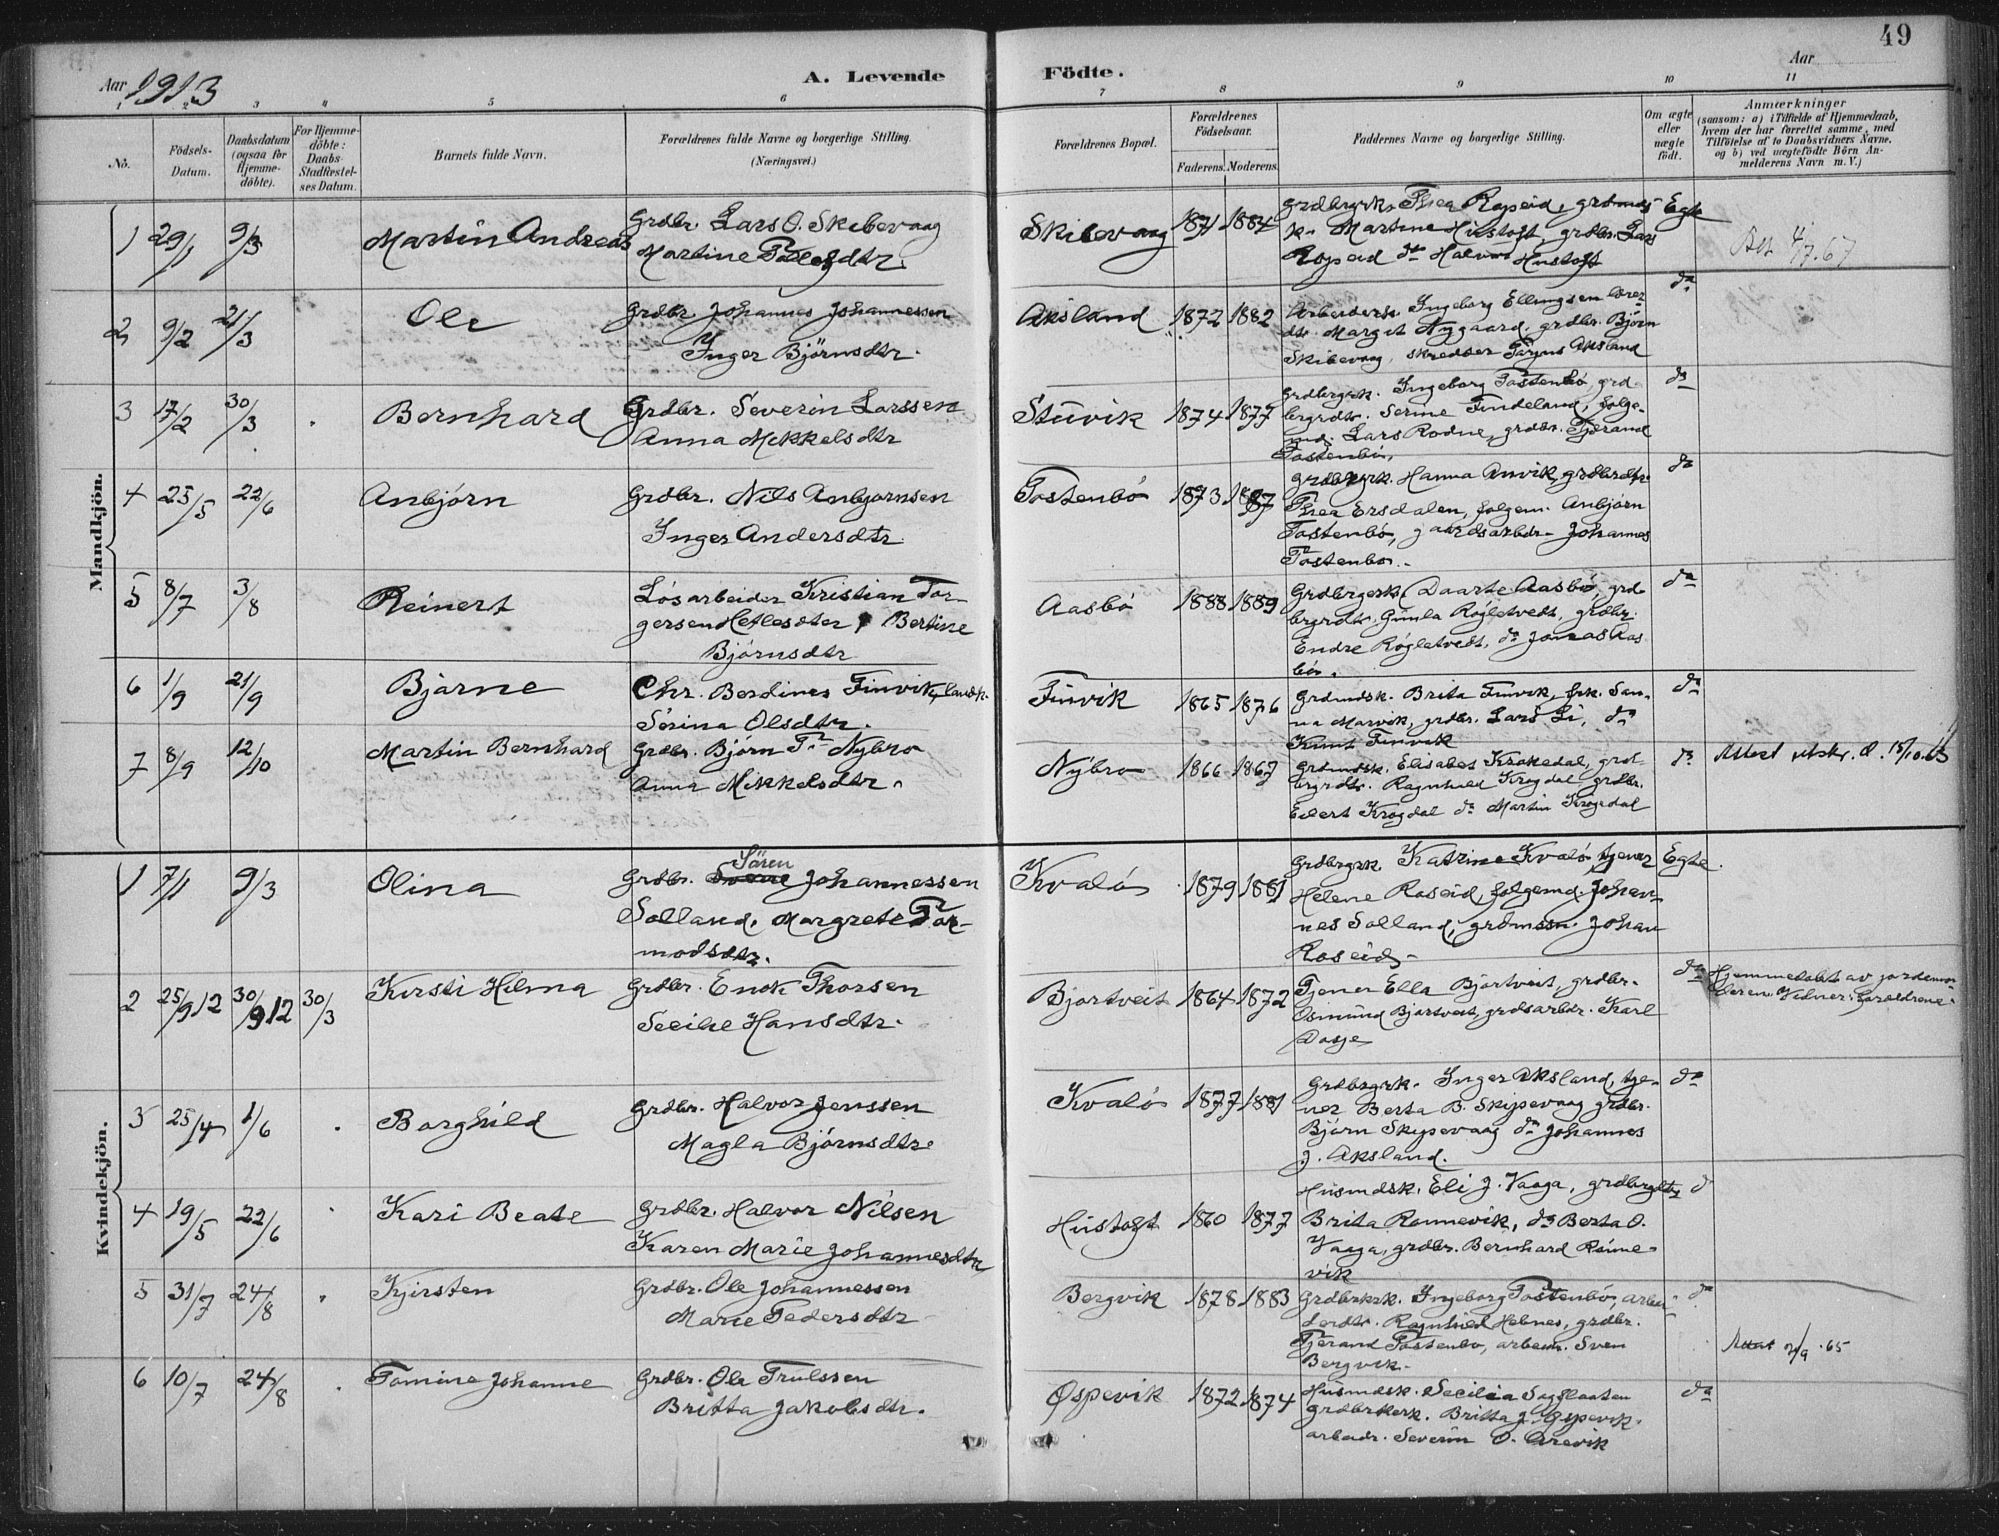 49
Aar 1913
A. Levende Födte.
Aar
1 2 3 4 5 6 7 8 9 10 11
No.
Födsels-Datum.
Daabsdatum (ogsaa for Hjemme-döbte).
For Hjemme-döbte: Daabs-Stadfæstel-ses Datum.
Barnets fulde Navn.
Forældrenes fulde Navne og borgerlige Stilling. (Næringsvei.)
Forældrenes Bopæl.
Forældrenes Födselsaar.
Faderens. Moderens.
Faddernes Navne og borgerlige Stilling.
Om ægte eller uægte födt.
Anmærkninger
(saasom: a) i Tilfælde af Hjemmedaab, hvem der har forrettet samme, med Tilföielse af to Daabsvidners Navne, og b) ved uægtefödte Börn An-melderens Navn m. V.)
Mandkjön.
1 29/1 9/3 Martin Andreas
Grdbr. Lars O. Skibevaag
Martine
Skibevaag 1871 1884
Grdbrgrk. Thea Ropeid, grdmds-
k. Martine Hustoft, grdbr. Lars
Ropeid do Halvor Hustoft
Egte
4/7.67
2 9/2 21/3 Ole
Grdbr. Johannes Johannessen
Inger Björnsdtr.
Aksland 1872 1882
Arbeidersk. Ingeborg Ellingsen lærer-
dtr. Margit Nygaard, grdbr. Björn
Skibevaag, skredder Aksland
do
3 17/2 30/3 Bernhard
Grdbr. Severin Larssen
Anna Mikkelsdtr
Stuvik 1874 1877
Grdbrgrk. Ingeborg Tostenbö, grd-
brgrdtr. Serine Tindeland, folge-
md. Lars Rodne, grdbr. Tjerand
Tostenbö,
do
4 25/5 22/6 Anbjörn
Grdbr. Nils Anbjørnsen
Inger Andersdtr.
Tostenbö 1873 1887
Grdbrgrk. Hanna Anvik, grdbrdtr.
Thea Ersdalen, folgem. Anbjørn
Tostenbö, gaardsarbdr. Johannes
Tostenbö.
do
5 8/7 3/8 Reinert
Lösarbeider Kristian Tor-
gersen Bertine
Björnsdtr
Aasbö 1888 1889
Grdbrgerk. Daarte Aasbö, grd-
brgrdtr. Gunla Rögletvedt, grdbr.
Endre Rögletvedt, do Jonas Aas-
bö.
do
6 1/9 21/9 Bjarne
Chr. Berdines Tinvik, landh.
Serina Olsdtr.
Tinvik 1865 1876
Grdmdsk. Brita Tinvik, frk. San-
na Marvik, grdbr. Lars Li, do
Knut Tinvik
do
7 8/9 12/10 Martin Bernhard
Grdbr. Björn T. Nybro
Anna Mikkelsdtr.
Nybro 1866 1867
Grdmdsk. Elisabet Krokedal, grd-
brgrdtr. Ragnhild Krogdal grdbr.
Eilert Krogdal do Martin Krogedal
do
Attest utskr. d. 15/10.65
Kvindekjön.
1 7/1 9/3 Olina
Sören
Grdbr. Johannessen
Solland, Margrete Tor-
modsdtr.
Kvalö 1879 1881
Grdbrgrk Katrine Kvalö, tjener
Helene Roseid, folgemd. Johan-
nes Solland, grdmssn. Johan
Roseid
Egte.
2 25/9 12 30/9 12 30/3 Kirsti Hilma
Grdbr. Enok Thorsen
Secilie Hansdtr.
Bjortveit 1864 1872
Tjener Ella Bjortveit, grdbr.
Osmund Bjortveit, grdsarbdr. Karl
Dosje
do
Hjemmedøbt av jordemo-
deren. Vidner: foreldrene
3 25/4 1/6 Borghild
Grdbr. Halvor Jenssen
Magla Björnsdtr.
Kvalö 1877 1881
Grdbrgrk. Inger Aksland, tje-
ner Berta B. Skipevaag grdbr.
Björn Skipevaag do Johannes
J. Aksland.
do
4 19/5 22/6 Kari Beate
Grdbr. Halvor Nilsen
Karen Marie Johannesdtr
Hustoft 1860 1877
Husmdsk. Eli J. Vaaga, grdbrgdtr
Brita Ronnevik, do Berta O.
Vaaga, grdbr. Bernhard Rönne-
vik
d
5 31/7 24/8 Kjirsten
Grdbr. Ole Johannessen
Marie Pedersdtr
Bergvik 1878 1883
Grdbrkrk. Ingeborg Tostenbö, arbei-
derdtr. Ragnhild Hebnes, grdbr.
Tjerand Tostenbö, arbeidr. Sven
Bergvik.
do
Attest 2/9.65
6 10/7 24/8 Tomine Johanne
Grdbr. Ole Trulssen
Britta Jakobsdtr.
Ospevik 1872 1874
Husmdsk. Secilia Sagflaaten
grdbrkerk. Britta J. Ospevik.
arbeidr. Severin O. Arevik
do